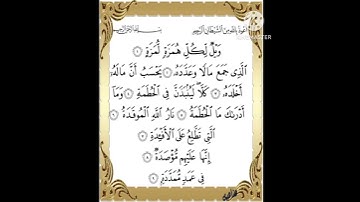 اعوذ بالله من الشيطان الرجيم بسم الله الرحمن الرحيم
وَيْلٌ لِّكُلِّ هُمَزَةٍ لُّمَزَةٍ ١
الَّذِي جَمَعَ مَالًا وَعَدَّدَهُ ٢ يَحْسَبُ أَنَّ مَالَهُ
أَخْلَدَهُ ٣ كَلَّا لَيُنْبَذَنَّ فِي الْحُطَمَةِ ٤ وَمَا
أَدْرَىٰكَ مَا الْحُطَمَةُ ٥ نَارُ اللَّهِ الْمُوقَدَةُ ٦
الَّتِي تَطَّلِعُ عَلَى الْأَفْئِدَةِ ٧
إِنَّهَا عَلَيْهِم مُّؤْصَدَةٌ ٨
فِي عَمَدٍ مُّمَدَّدَةٍ ٩